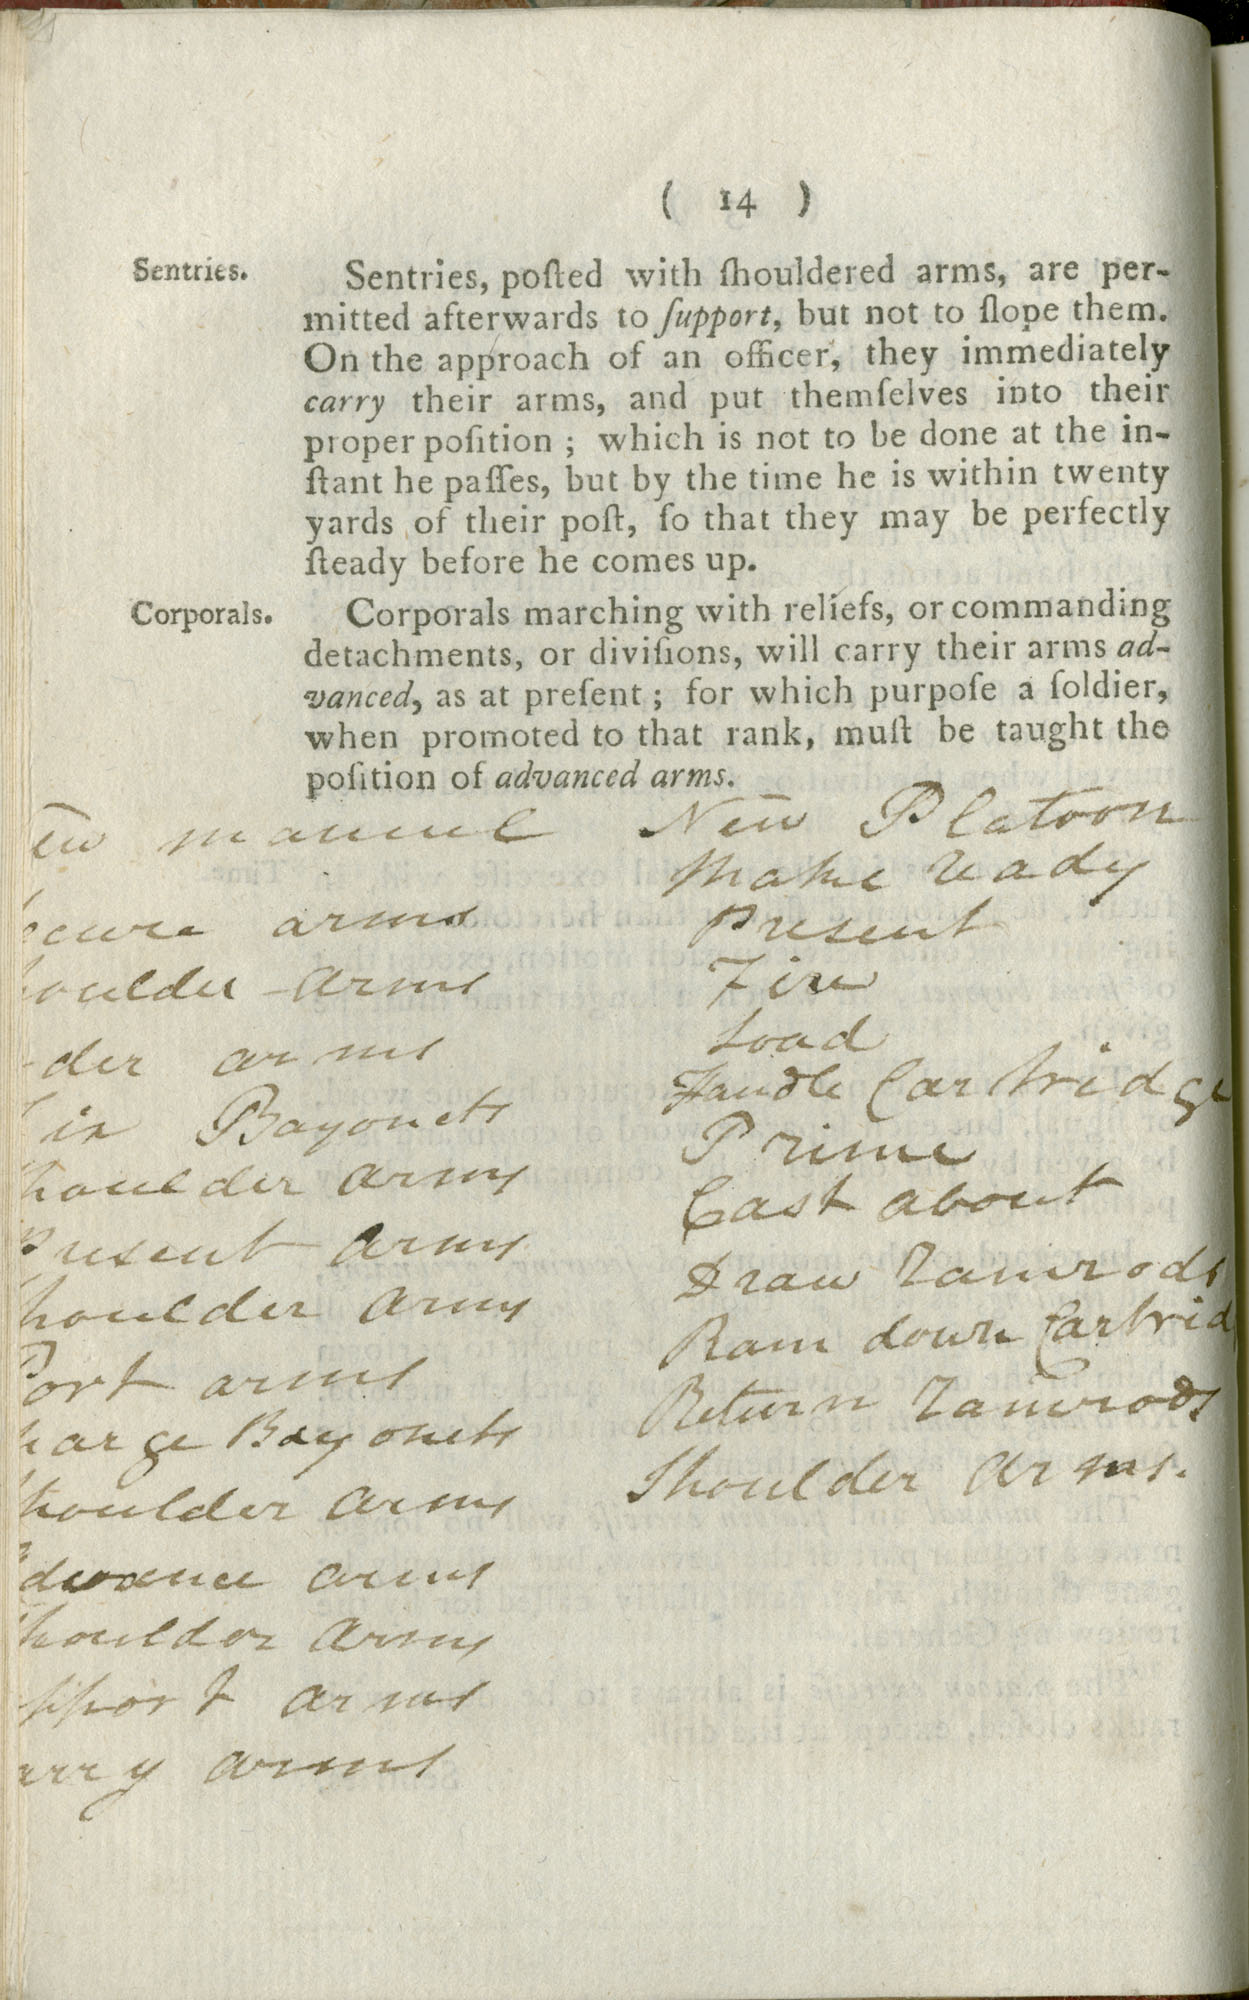 ( 14 )
Sentries.
Sentries, poſted with ſhouldered arms, are per-
mitted afterwards to ſupport, but not to ſlope them.
On the approach of an officer, they immediately
carry their arms, and put themſelves into their
proper poſition ; which is not to be done at the in-
ſtant he paſſes, but by the time he is within twenty
yards of their poſt, ſo that they may be perfectly
ſteady before he comes up.
Corporals.
Corporals marching with reliefs, or commanding
detachments, or diviſions, will carry their arms ad-
vanced, as at preſent ; for which purpoſe a ſoldier,
when promoted to that rank, muſt be taught the
poſition of advanced arms.
ew manuel
ecure arms
houlder arms
der arms
fix Bayonets
houlder arms
Present arms
houlder arms
Port arms
harge Bayonets
houlder arms
dvance arms
houlder arms
pport arms
arry arms
New Platoon
Make ready
Present
Fire
Load
Handle Cartridge
Prime
Cast about
Draw Ramrods
Ram down Cartrid
Return Ramrods
Shoulder arms.